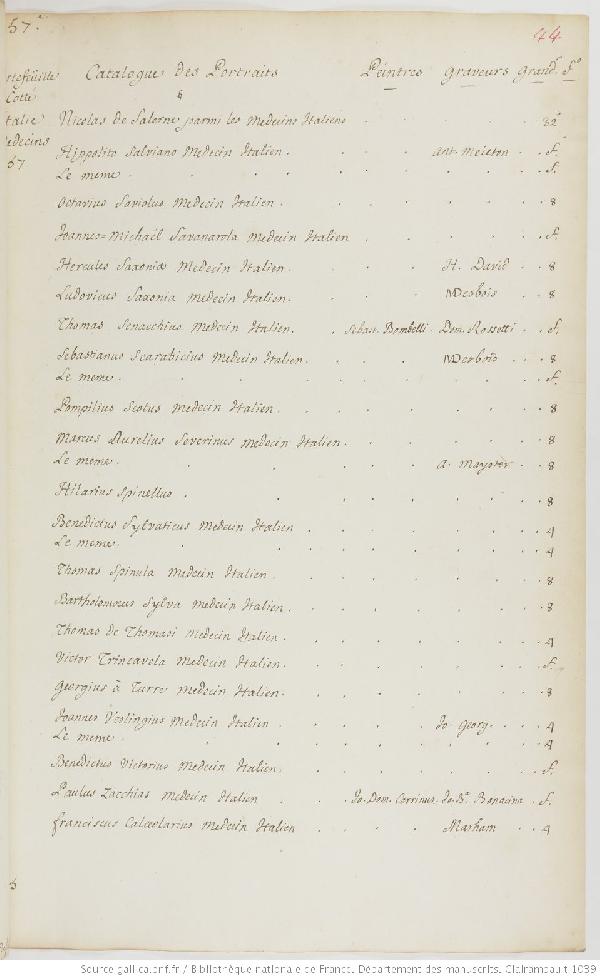 57.e
44
rtefeuille Catalogue des Portraits Peintres Graveurs Grand. f.o
Cotté
talie
edecins
57
Nicolas de Salerne parmi les Medecins Italiens 32.e
Hippolito Salviano Medecin Italien. Ant. f.
Le meme. f.
Octavius Saviolus Medecin Italien. 8
Joannes=Michaël Savanarola Medecin Italien f.
Hercules Saxonia Medecin Italien. H. David 8
Ludovicus Saxonia Medecin Italien. Desbois 8
Thomas Senacchius Medecin Italien. Sebast. Bombelli. Dom. Rossetti f.
Sebastianus Scarabicius Medecin Italien. Desbois 8
Le meme. f.
Pompilius Scotus Medecin Italien. 8
Marcus Aurelius Severinus Medecin Italien. 8
Le meme. A. 8
Hilarius Spinellus 8
Benedictus Sylvaticus Medecin Italien 4
Le meme. 4
Thomas Spinula Medecin Italien. 8
Bartholomoeus Sylva Medecin Italien. 8
Thomas de Thomasi Medecin Italien. 4
Victor Trincavela Medecin Italien. f.
Georgius à Turre Medecin Italien. 8
Joannes Veslingius Medecin Italien Jo. Georg. 4
Le meme. 4
Benedictus Victorius Medecin Italien. f.
Paulus Zacchias Medecin Italien Jo. Dom. Cerrinus. Jo. B.a Bonacina f.
franciscus Calceolarius Medecin Italien 4
Source gallica.bnf.fr / Bibliothèque nationale de France. Département des manuscrits. Clairambault 1039